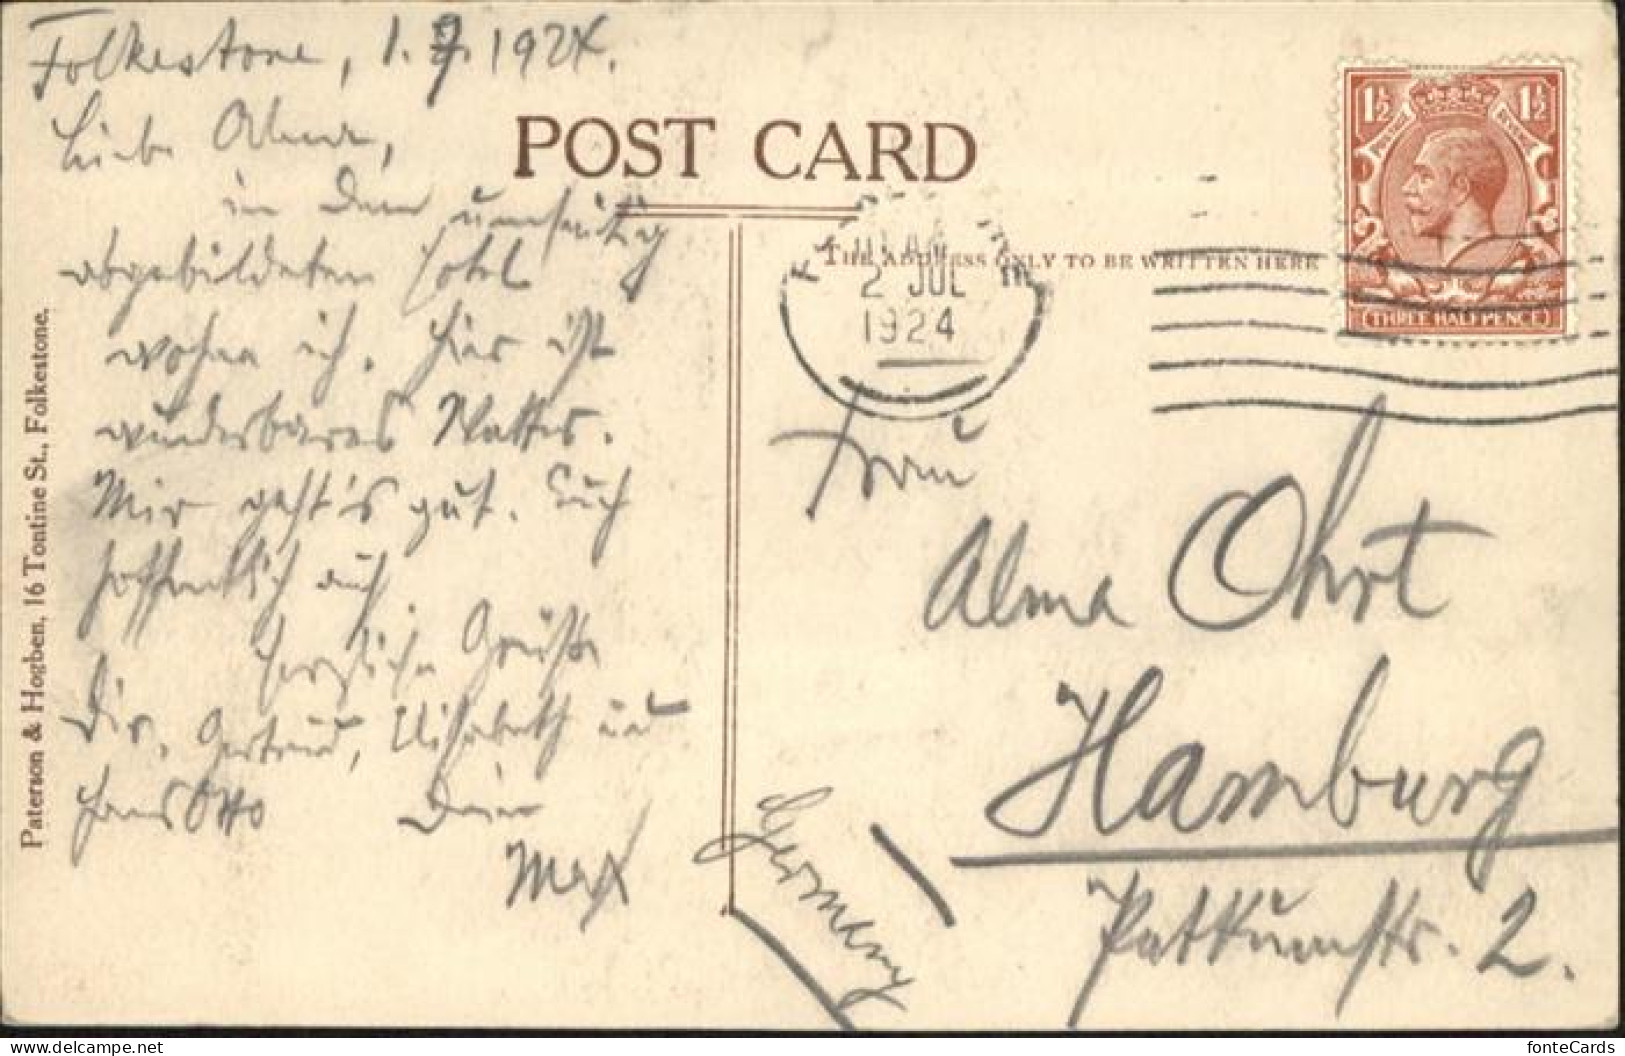 Folkestone, 1.7.1924.
Liebe Alma,
in dem umseitig
abgebildeten Hotel
wohne ich. Hier ist
wunderbares Wetter.
Mir geht's gut. Euch
hoffentlich auch
Herzliche Grüße
Dir, Gertrud, Elisabeth und
Hans Otto Dein
Max
Paterson & Hogben, 16 Tontine St., Folkestone.
POST CARD
THE ADDRESS ONLY TO BE WRITTEN HERE
2 JUL
1924
1½ 1½
POSTAGE REVENUE
THREE HALFPENCE
Frau
Alma Ohrt
Hamburg
Patkumstr. 2.
Germany
fonteCards